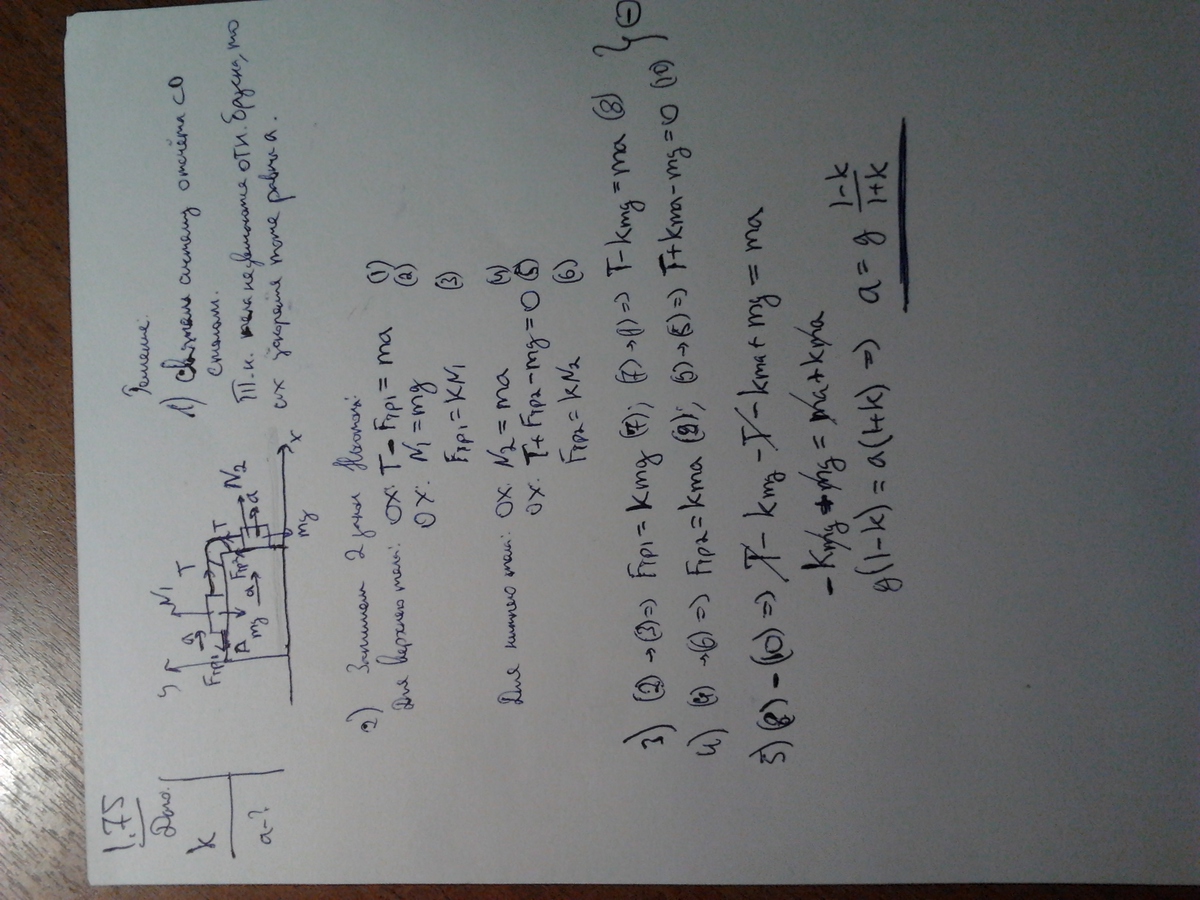 1.75
Дано:
k
a-?
Решение:
1) Свяжем систему отсчёта со
столом.
Т.к. тела не движутся отн. бруска, то
их ускорение тоже равны a.
y
N1
T
a
Fтр1
P
mg
a
Fтр2
T
N2
a
mg
x
2) Запишем 2 закон Ньютона:
Для верхнего тела: OX: T - Fтр1 = ma (1)
OX: N1 = mg (2)
Fтр1 = kN1 (3)
Для нижнего тела: OX: N2 = ma (4)
OX: T + Fтр2 - mg = 0 (5)
Fтр2 = kN2 (6)
3) (2) → (3) => Fтр1 = kmg (7); (7) → (1) => T - kmg = ma (8)
4) (4) → (6) => Fтр2 = kma (9); (9) → (5) => T + kma - mg = 0 (10) } ⊖
5) (8) - (10) => T - kmg - T - kma + mg = ma
- kmg + mg = ma + kma
g(1-k) = a(1+k) => a = g \frac{1-k}{1+k}